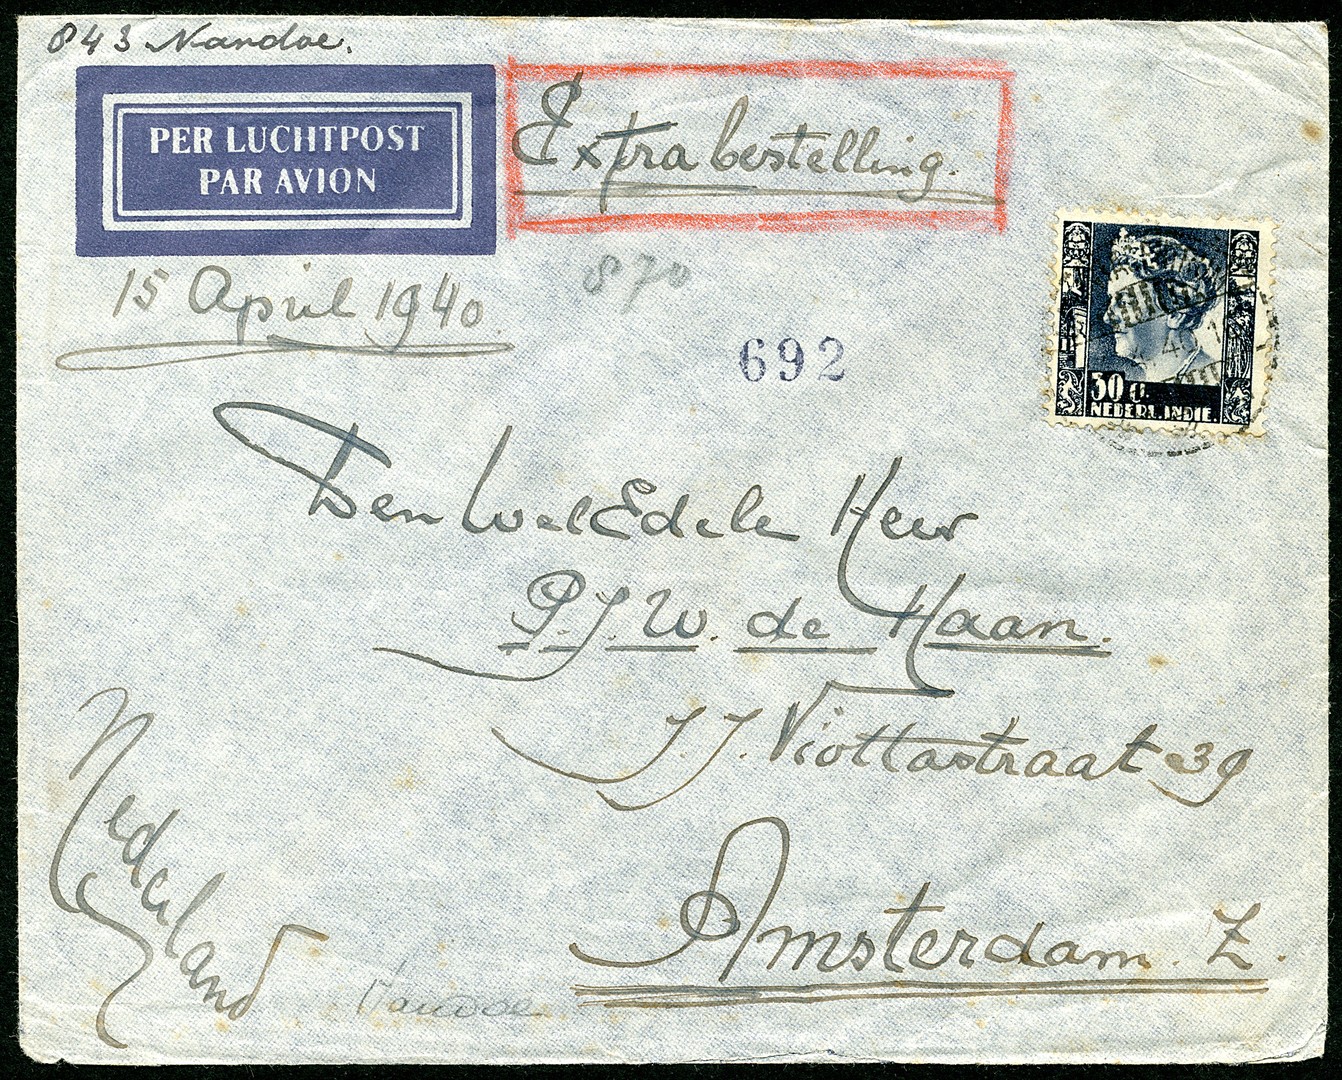 843 Nandoe.
PER LUCHTPOST
PAR AVION
Extra bestelling.
15 April 1940
870
692
30 c.
NEDERL. INDIE.
Den WelEdele Heer
P.J.W. de Haan.
J.J. Viottastraat 39
Amsterdam. Z.
Nederland
Nandoe